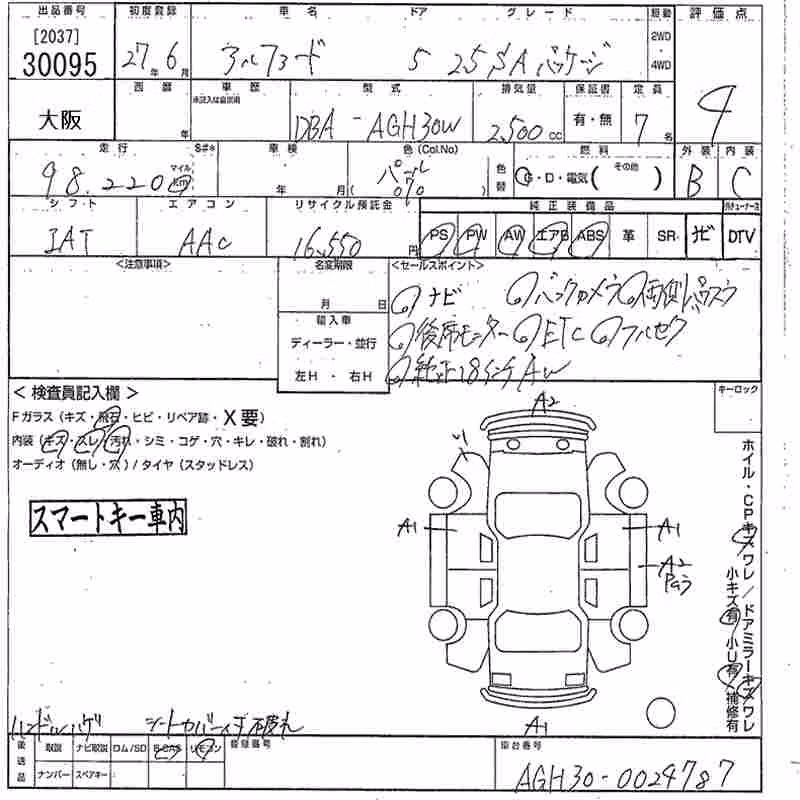 出品番号 初度登録 車名 ドア グレード 駆動 評価点
[2037]
30095 27年 6月 アルファード 5 2.5 SAパッケージ 2WD・4WD 4
大阪 西暦 年 車歴 型式 排気量 保証書 定員
承認記入は自家用 DBA - AGH30W 2,500cc 有・無 7名
走行 S#* 車検 色(Col.No) 燃料 外装 内装
98,220 マイル km 年 月 パール ( 070 ) 色替 G・D・電気( その他 ) B C
シフト エアコン リサイクル預託金 純正装備品
IAT AAC 16,550円 PS PW AW エアB ABS 革 SR ナビ DTV
<注意事項> 名変期限 <セールスポイント>
月 日 ナビ バックカメラ 両側パワスラ
輸入車 後席モニター ETC フルセグ
ディーラー・並行 純正18インチAW
左H・右H
< 検査員記入欄 > キーロック
Fガラス(キズ・飛石・ヒビ・リペア跡・X要)
内装(キズ・スレ・汚れ・シミ・コゲ・穴・キレ・破れ・割れ)
オーディオ(無し・穴)/タイヤ(スタッドレス)
スマートキー車内
A2
A1 A1
A2
A1
ホイル・CPキズワレ/ドアミラーキズワレ
小キズ有 小U有 補修有
ハンドルハゲ シートカバーイチ破れ
後送品 取説 ナビ取説 ロム/SD B-CAS リモコン 登録番号 車台番号
ナンバー スペアキー AGH30-0024787